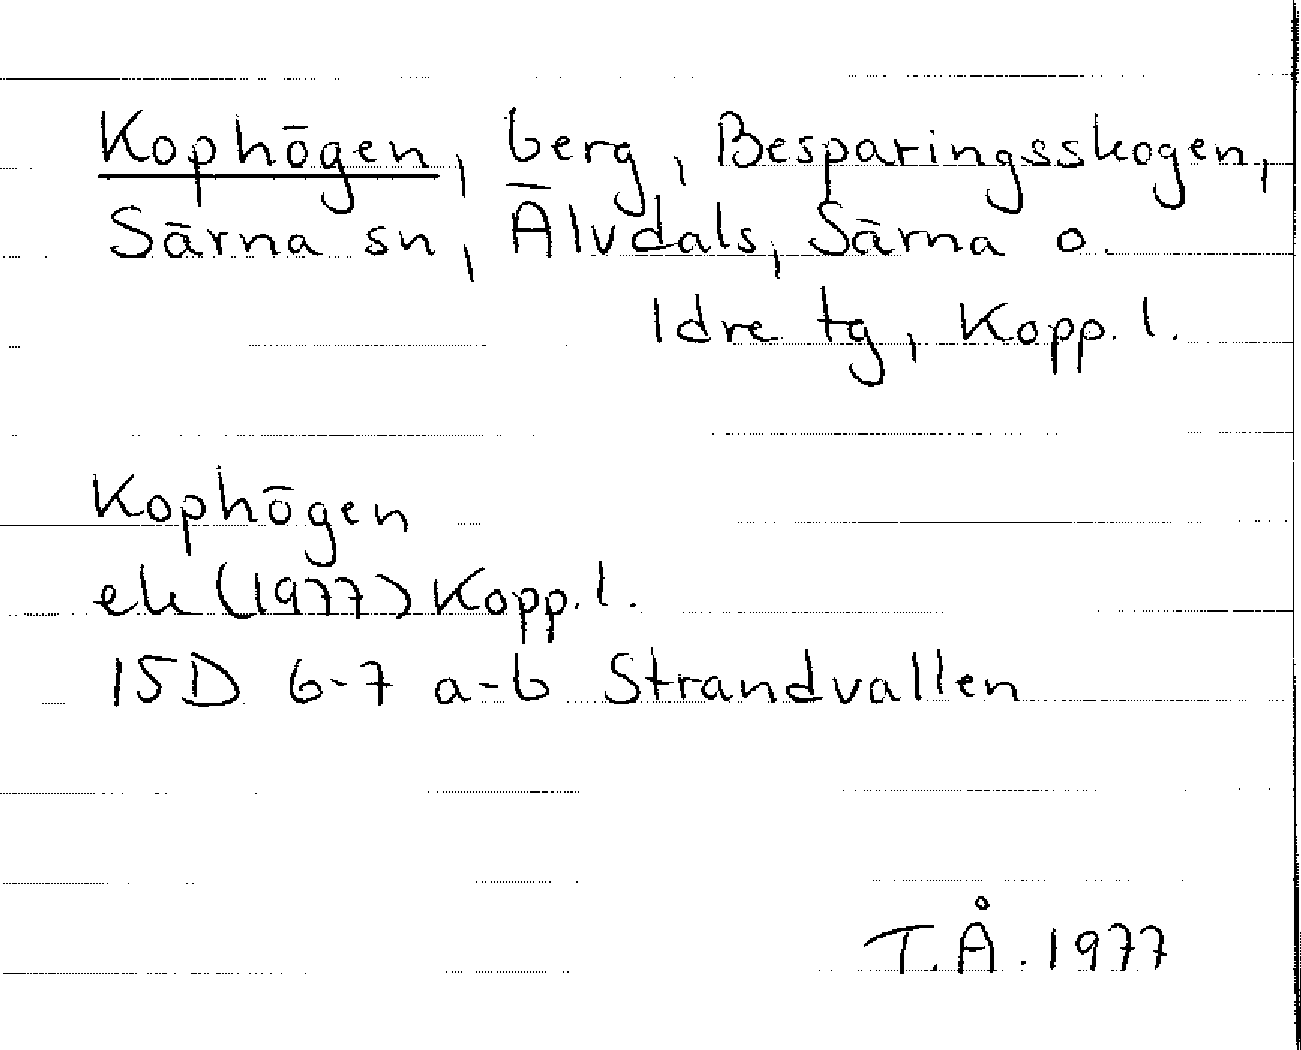 Kophögen, berg, Besparingsskogen,
Särna sn, Älvdals, Särna o.
Idre tg, Kopp. l.
Kophögen
ek (1977) Kopp. l.
15D 6-7 a-b Strandvallen
T.Å. 1977